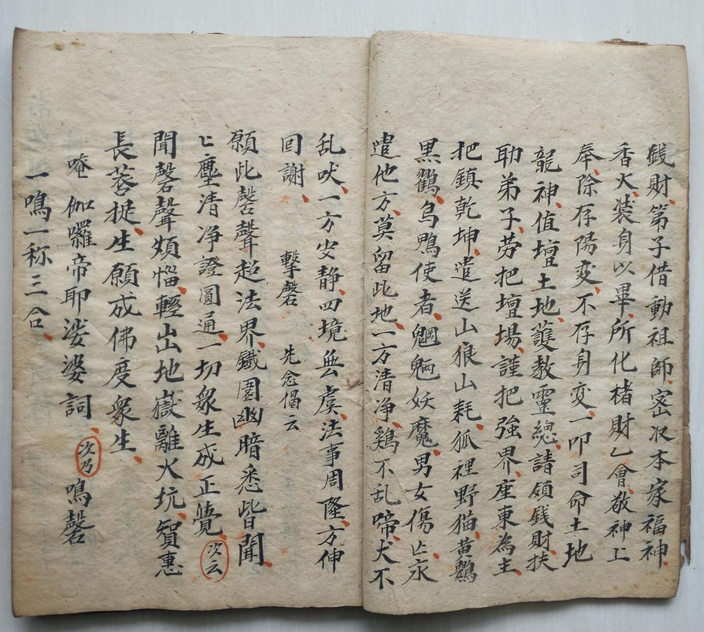 錢財、第子借動祖師、密收本家福神
香火、裝身以畢、所化楮財乙會、敬神上
奉、除存陽变、不存身变、一叩司命土地
龍神、值壇土地、護教靈總、請領錢財、扶
助弟子、劳把壇場、謹把強界、座東為主
把鎮乾坤、遣送山狼山耗、狐裡野猫、黄鷄
黑鷄、烏鴨使者、魍魎妖魔、男女傷亡、永
遣他方、莫留此地、一方清净、鷄不乱啼、犬不
乱吠、一方安静、四境無虞、法事周隆、方伸
回謝、 擊磬 先念偈云
願此磬聲超法界、鐵圍幽暗悉皆聞
亡塵清净證圓通、一切衆生成正覺 次云
聞磬聲煩惱輕、出地嶽離火坑、智惠
長、菩提生、願成佛度衆生、
唵 伽囉帝耶娑婆訶、 次乃 鳴磬
一鳴一称三合、